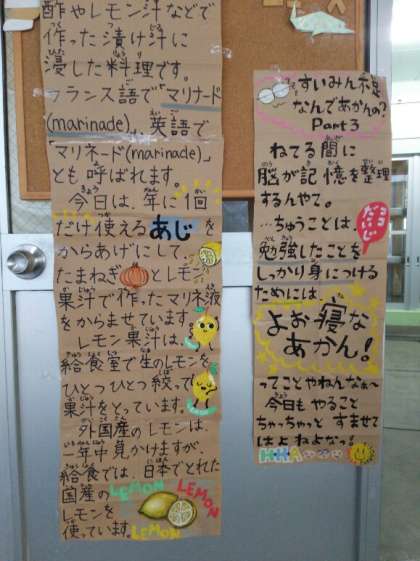 酢やレモン汁などで
作った漬け汁に
浸した料理です。
フランス語で「マリナード
(marinade)」、英語で
「マリネード(marinade)」
とも呼ばれます。
今日は、年に1回
だけ使えるあじを
からあげにして、
たまねぎとレモン
果汁で作ったマリネ液
をからませています。
レモン果汁は、
給食室で生のレモンを
ひとつひとつ絞って
果汁をとっています。
外国産のレモンは
一年中見かけますが、
給食では、日本でとれた
国産の
レモンを
使っています。
LEMON
LEMON
LEMON
すいみん不足
なんであかんの?
Part3
ねてる間に
脳が記憶を整理
するんやて。
…ちゅうことは、
勉強したことを
しっかり身につける
ためには、
ココ
だいじ
よお寝な
あかん!
ってことやねんなぁ〜
今日もやること
ちゃっちゃっとすませて
はよねよなっ!